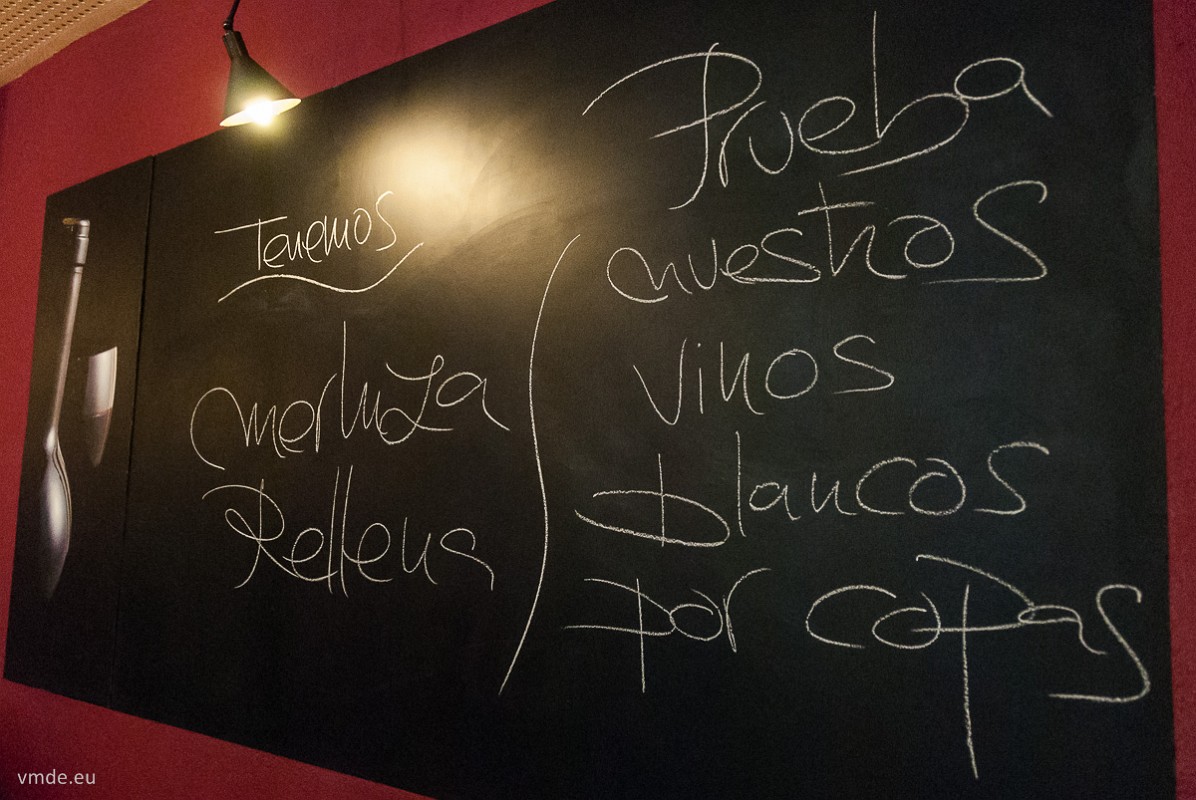 Tenemos
merluza
Rellena
Prueba
nuestros
vinos
blancos
por copas
vmde.eu